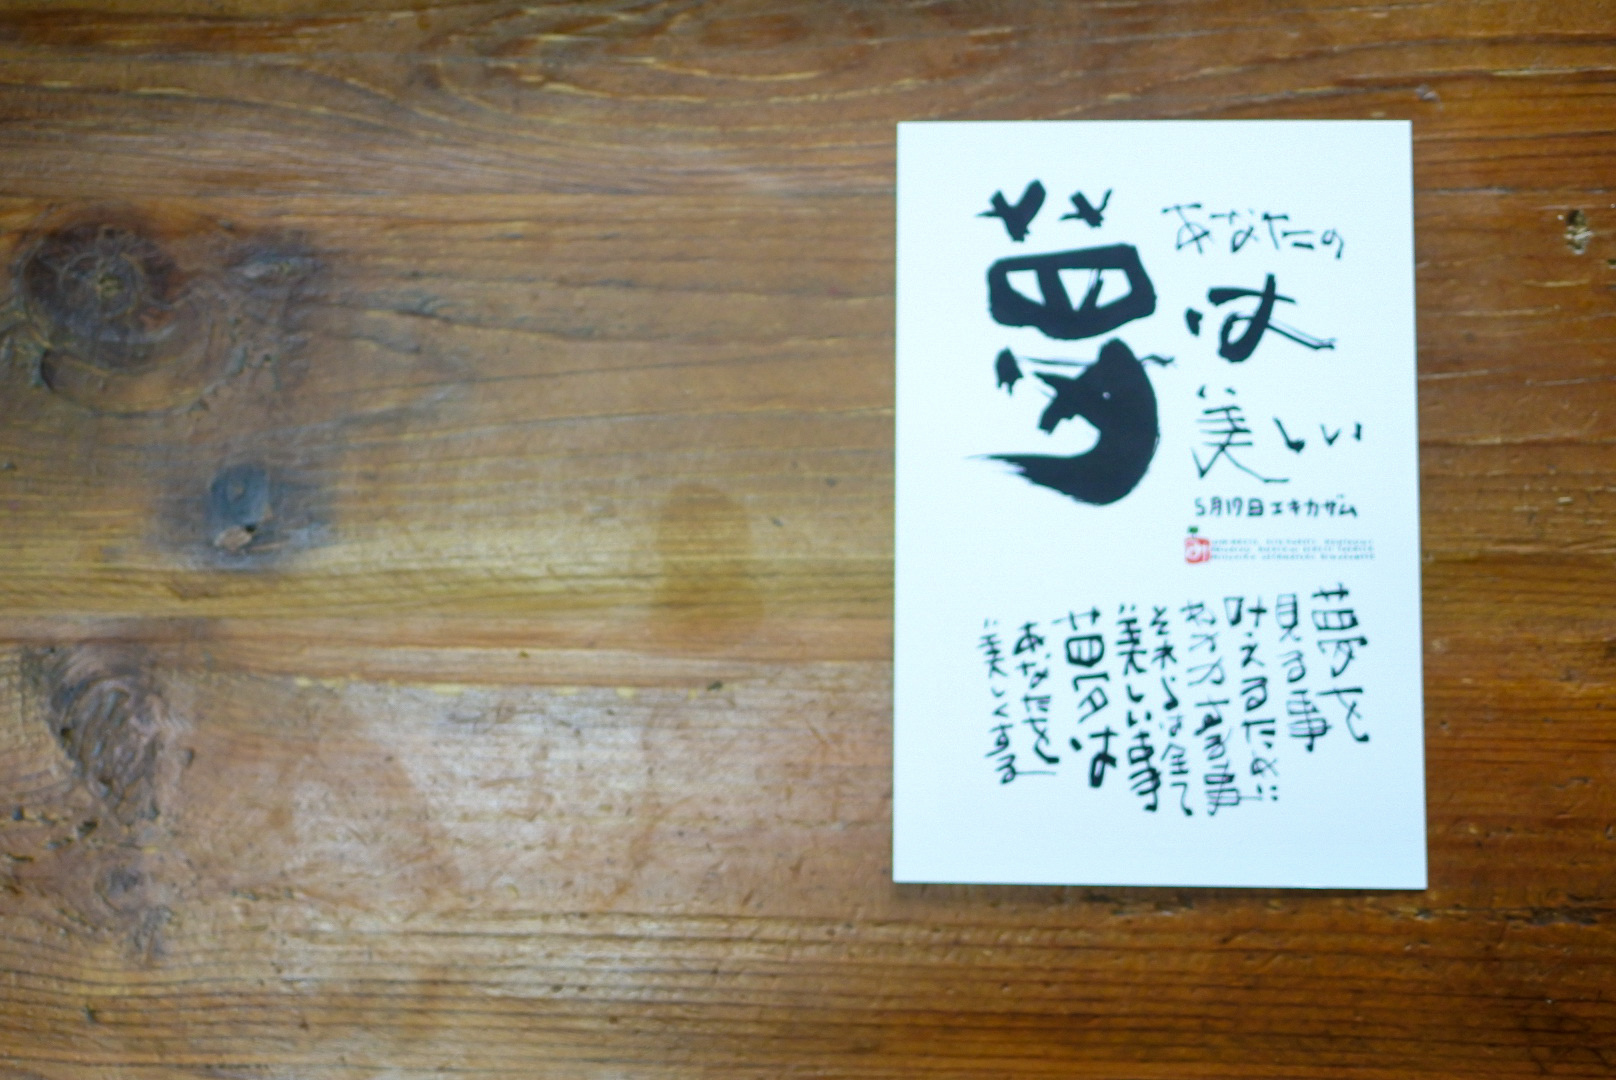 あなたの
夢
は
美しい
5月17日エキカザム
夢を
見る事
叶えるために
それらは全て
美しい事
夢は
あなたを
美しくする